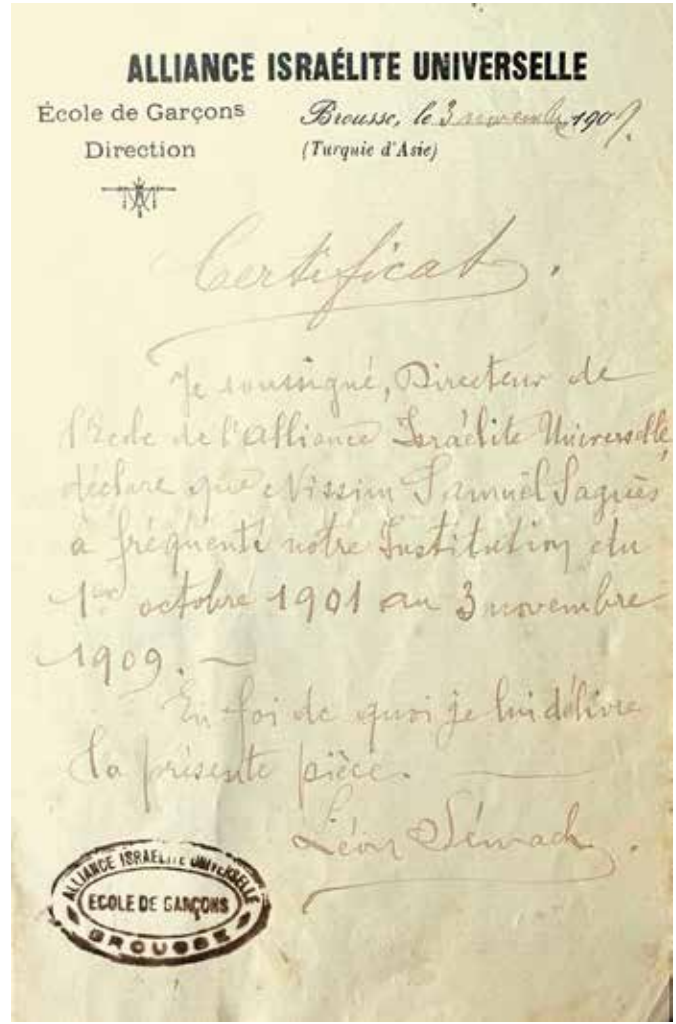 ALLIANCE ISRAÉLITE UNIVERSELLE
École de Garçons
Direction
Brousse, le 3 novembre 1909.
(Turquie d'Asie)
Certificat.
Je soussigné, Directeur de
l'Ecole de l'Alliance Israélite Universelle,
déclare que Nissim Samuël Saguès
a fréquenté notre Institution du
1er octobre 1901 au 3 novembre
1909. —
En foi de quoi je lui délivre
la présente pièce. —
Léon Sémach.
ALLIANCE ISRAELITE UNIVERSELLE
ECOLE DE GARÇONS
BROUSSE